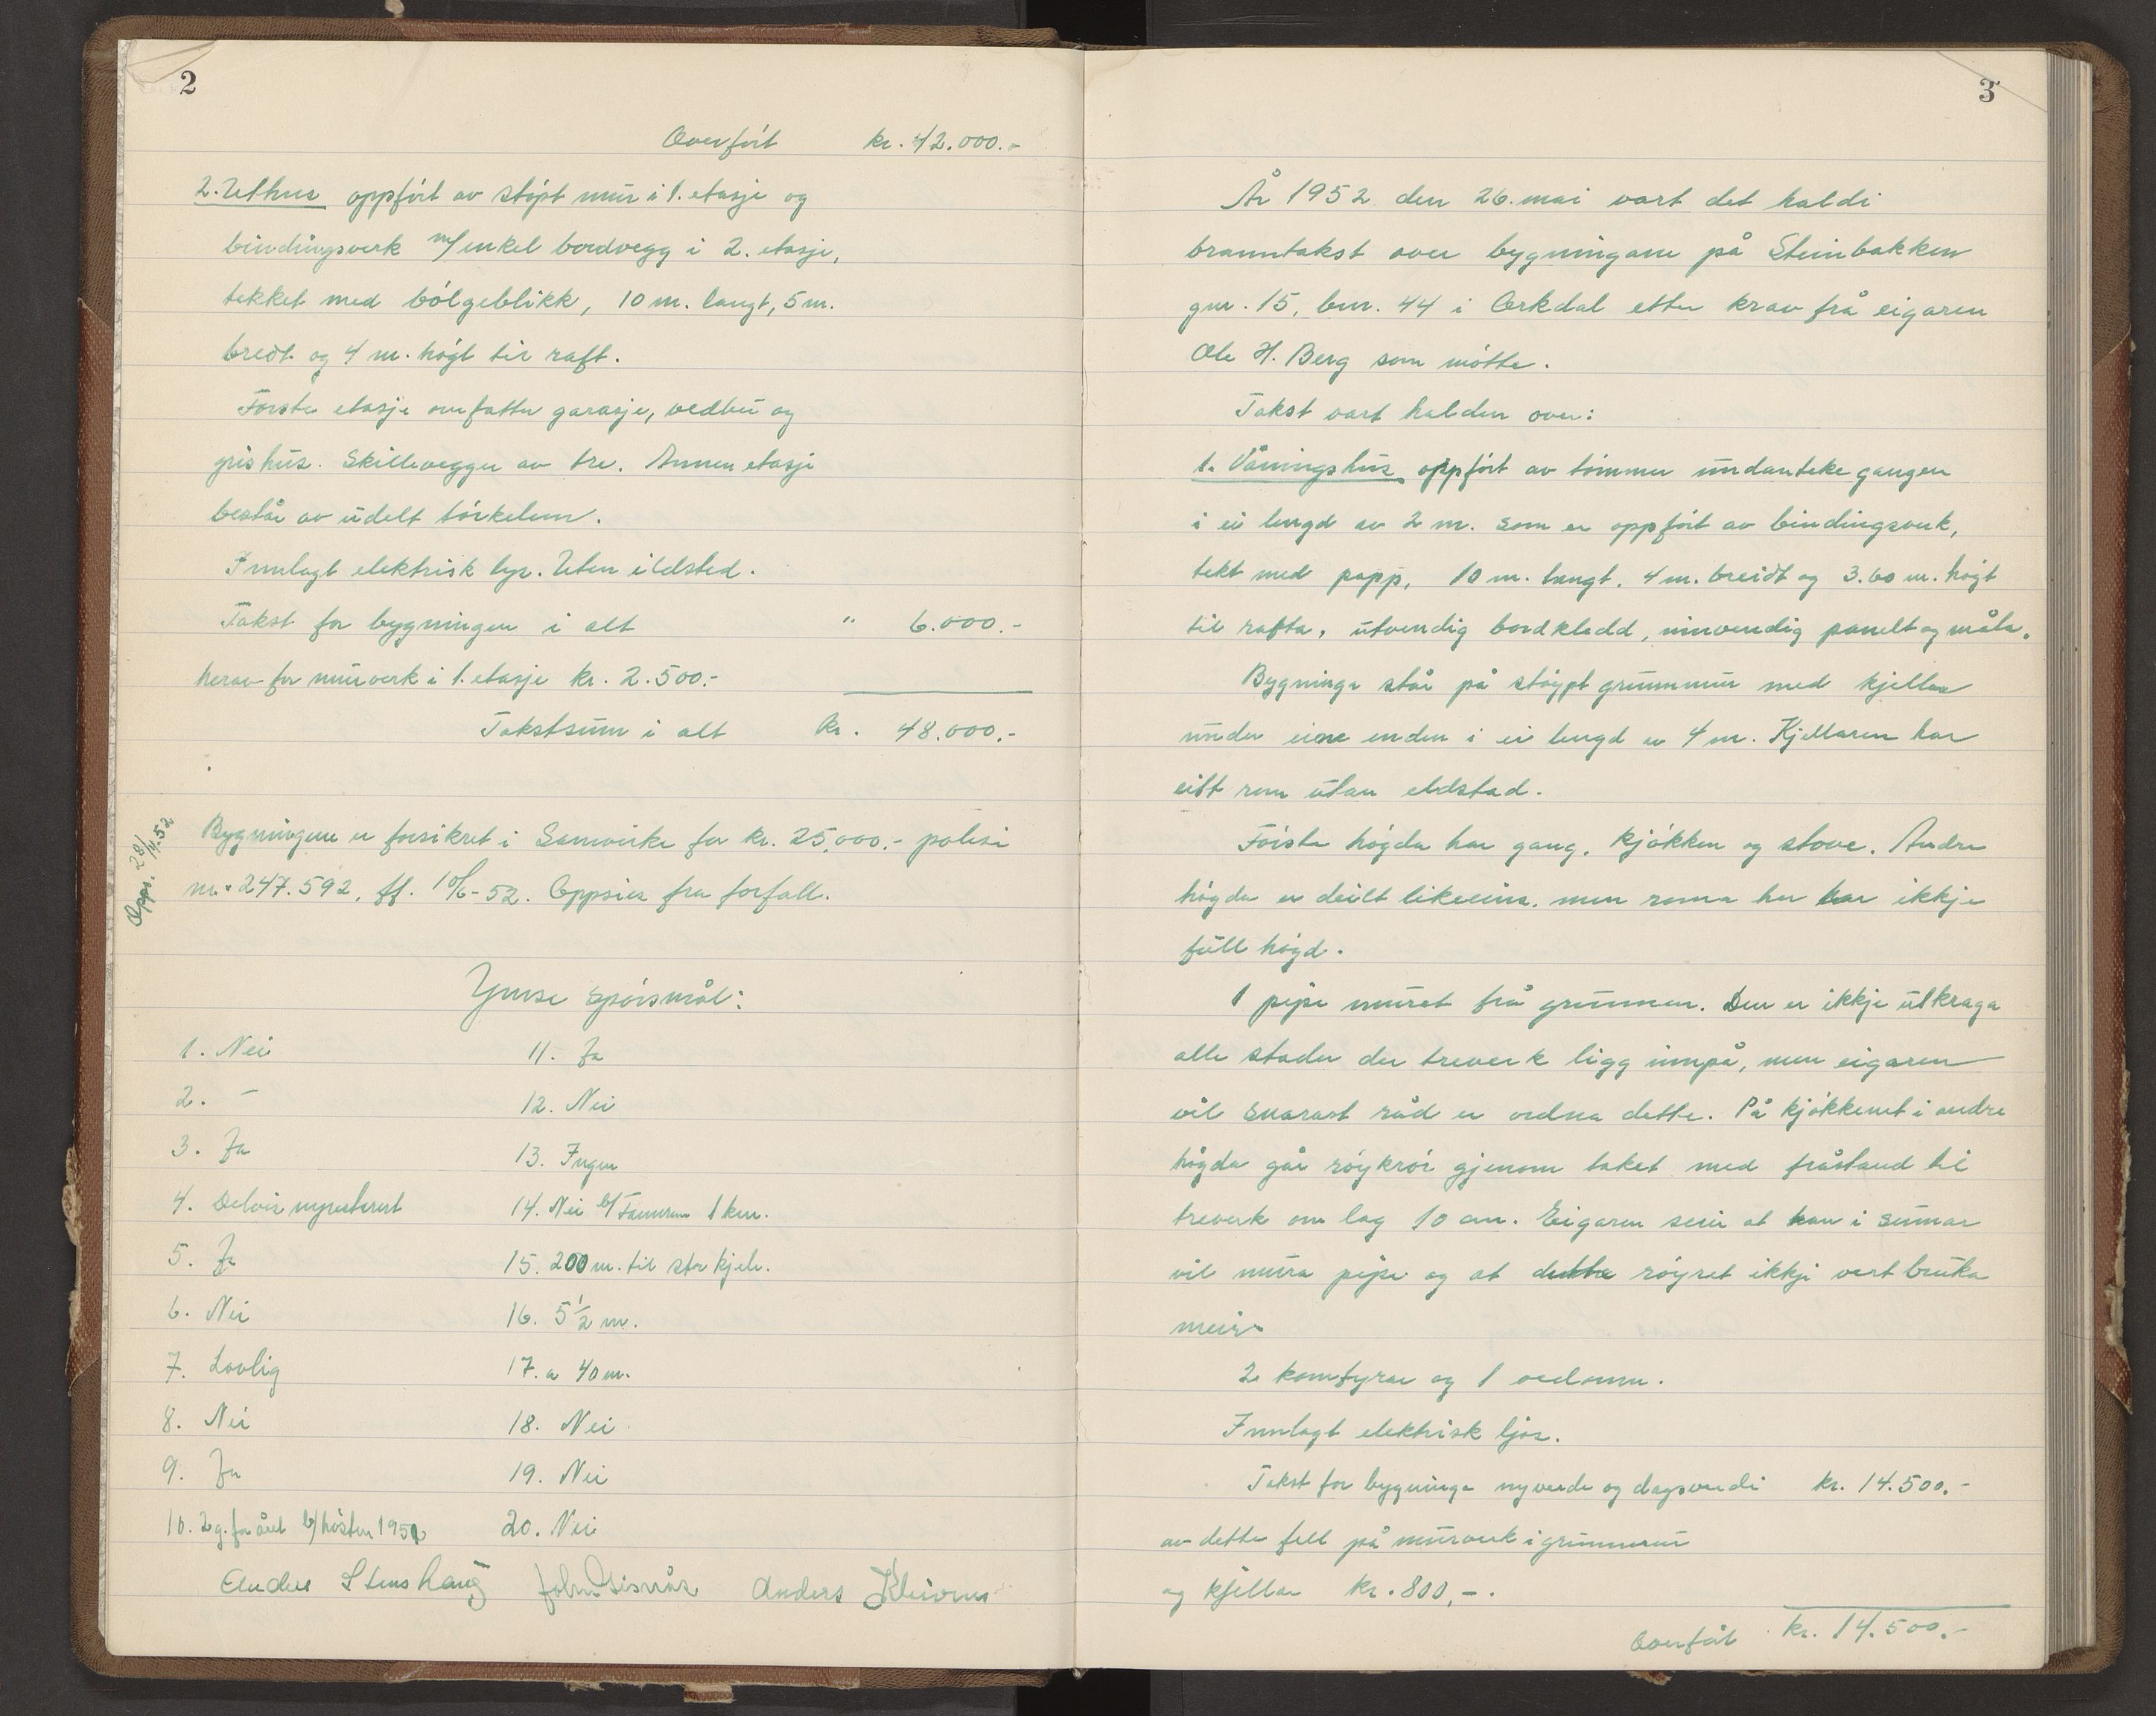 2
Overfört kr. 42.000.-
2. Uthus oppfört av stöpt mur i 1. etasje og
bindingsverk m/enkel bordvegg i 2. etasje,
tekket med bölgeblikk, 10 m. langt, 5 m.
bredt og 4 m. högt til raft.
Förste etasje omfatter garasje, vedbu og
grishus. Skillevegger av tre. Annen etasje
består av udelt törkelem.
Innlagt elektrisk lys. Uten ildsted.
Takst for bygningen i alt " 6.000.-
herav for murverk i 1. etasje kr. 2.500.-
Takstsum i alt kr. 48.000.-
Opps. 28/4.52
Bygningene er forsikret i Samvirke for kr. 25.000.- polise
nr. 247.592, ff. 10/6-52. Oppsies fra forfall.
Ymse spörsmål:
1. Nei
2. -
3. Ja
4. Delvis nyrestaurert
5. Ja
6. Nei
7. Lovlig
8. Nei
9. Ja
10. 2 g. for året b/hösten 1951
11. Ja
12. Nei
13. Ingen
14. Nei b/Fannrem 1 km.
15. 200 m. til stor kjele.
16. 5 1/2 m.
17. a 40 m.
18. Nei
19. Nei
20. Nei
Anders Stenshaug John Gisnås Anders Kleivrum
3
År 1952 den 26. mai vart det haldi
branntakst over bygningane på Steinbakken
gnr. 15, bnr. 44 i Orkdal etter krav frå eigaren
Ole H. Berg som mötte.
Takst vart halden over:
1. Våningshus oppfört av tömmer undanteke gangen
i ei lengd av 2 m. som er oppfört av bindingsverk,
tekt med papp, 10 m. langt, 4 m. breidt og 3.60 m. högt
til rafta, utvendig bordkledd, innvendig panelt og måla.
Bygninga står på stöypt grunnmur med kjellar
under eine enden i ei lengd av 4 m. Kjellaren har
eitt rom utan eldstad.
Förste högda har gang, kjökken og stove. Andre
högda er deilt likeeins, men romma her har ikkje
full högd.
1 pipe muret frå grunnen. Den er ikkje utkraga
alle stader der treverk ligg innpå, men eigaren
vil snarast råd er ordna dette. På kjökkenet i andre
högda går röykrör gjenom taket med fråstand til
treverk om lag 10 cm. Eigaren seier at han i sumar
vil mura pipe og at dette röyret ikkje vert bruka
meir.
2 komfyrar og 1 vedomn.
Innlagt elektrisk ljos.
Takst for bygninga nyverde og dagsverdi kr. 14.500.-
av dette fell på murverk i grunnmur
og kjellar kr. 800,-.
Overfört kr. 14.500.-